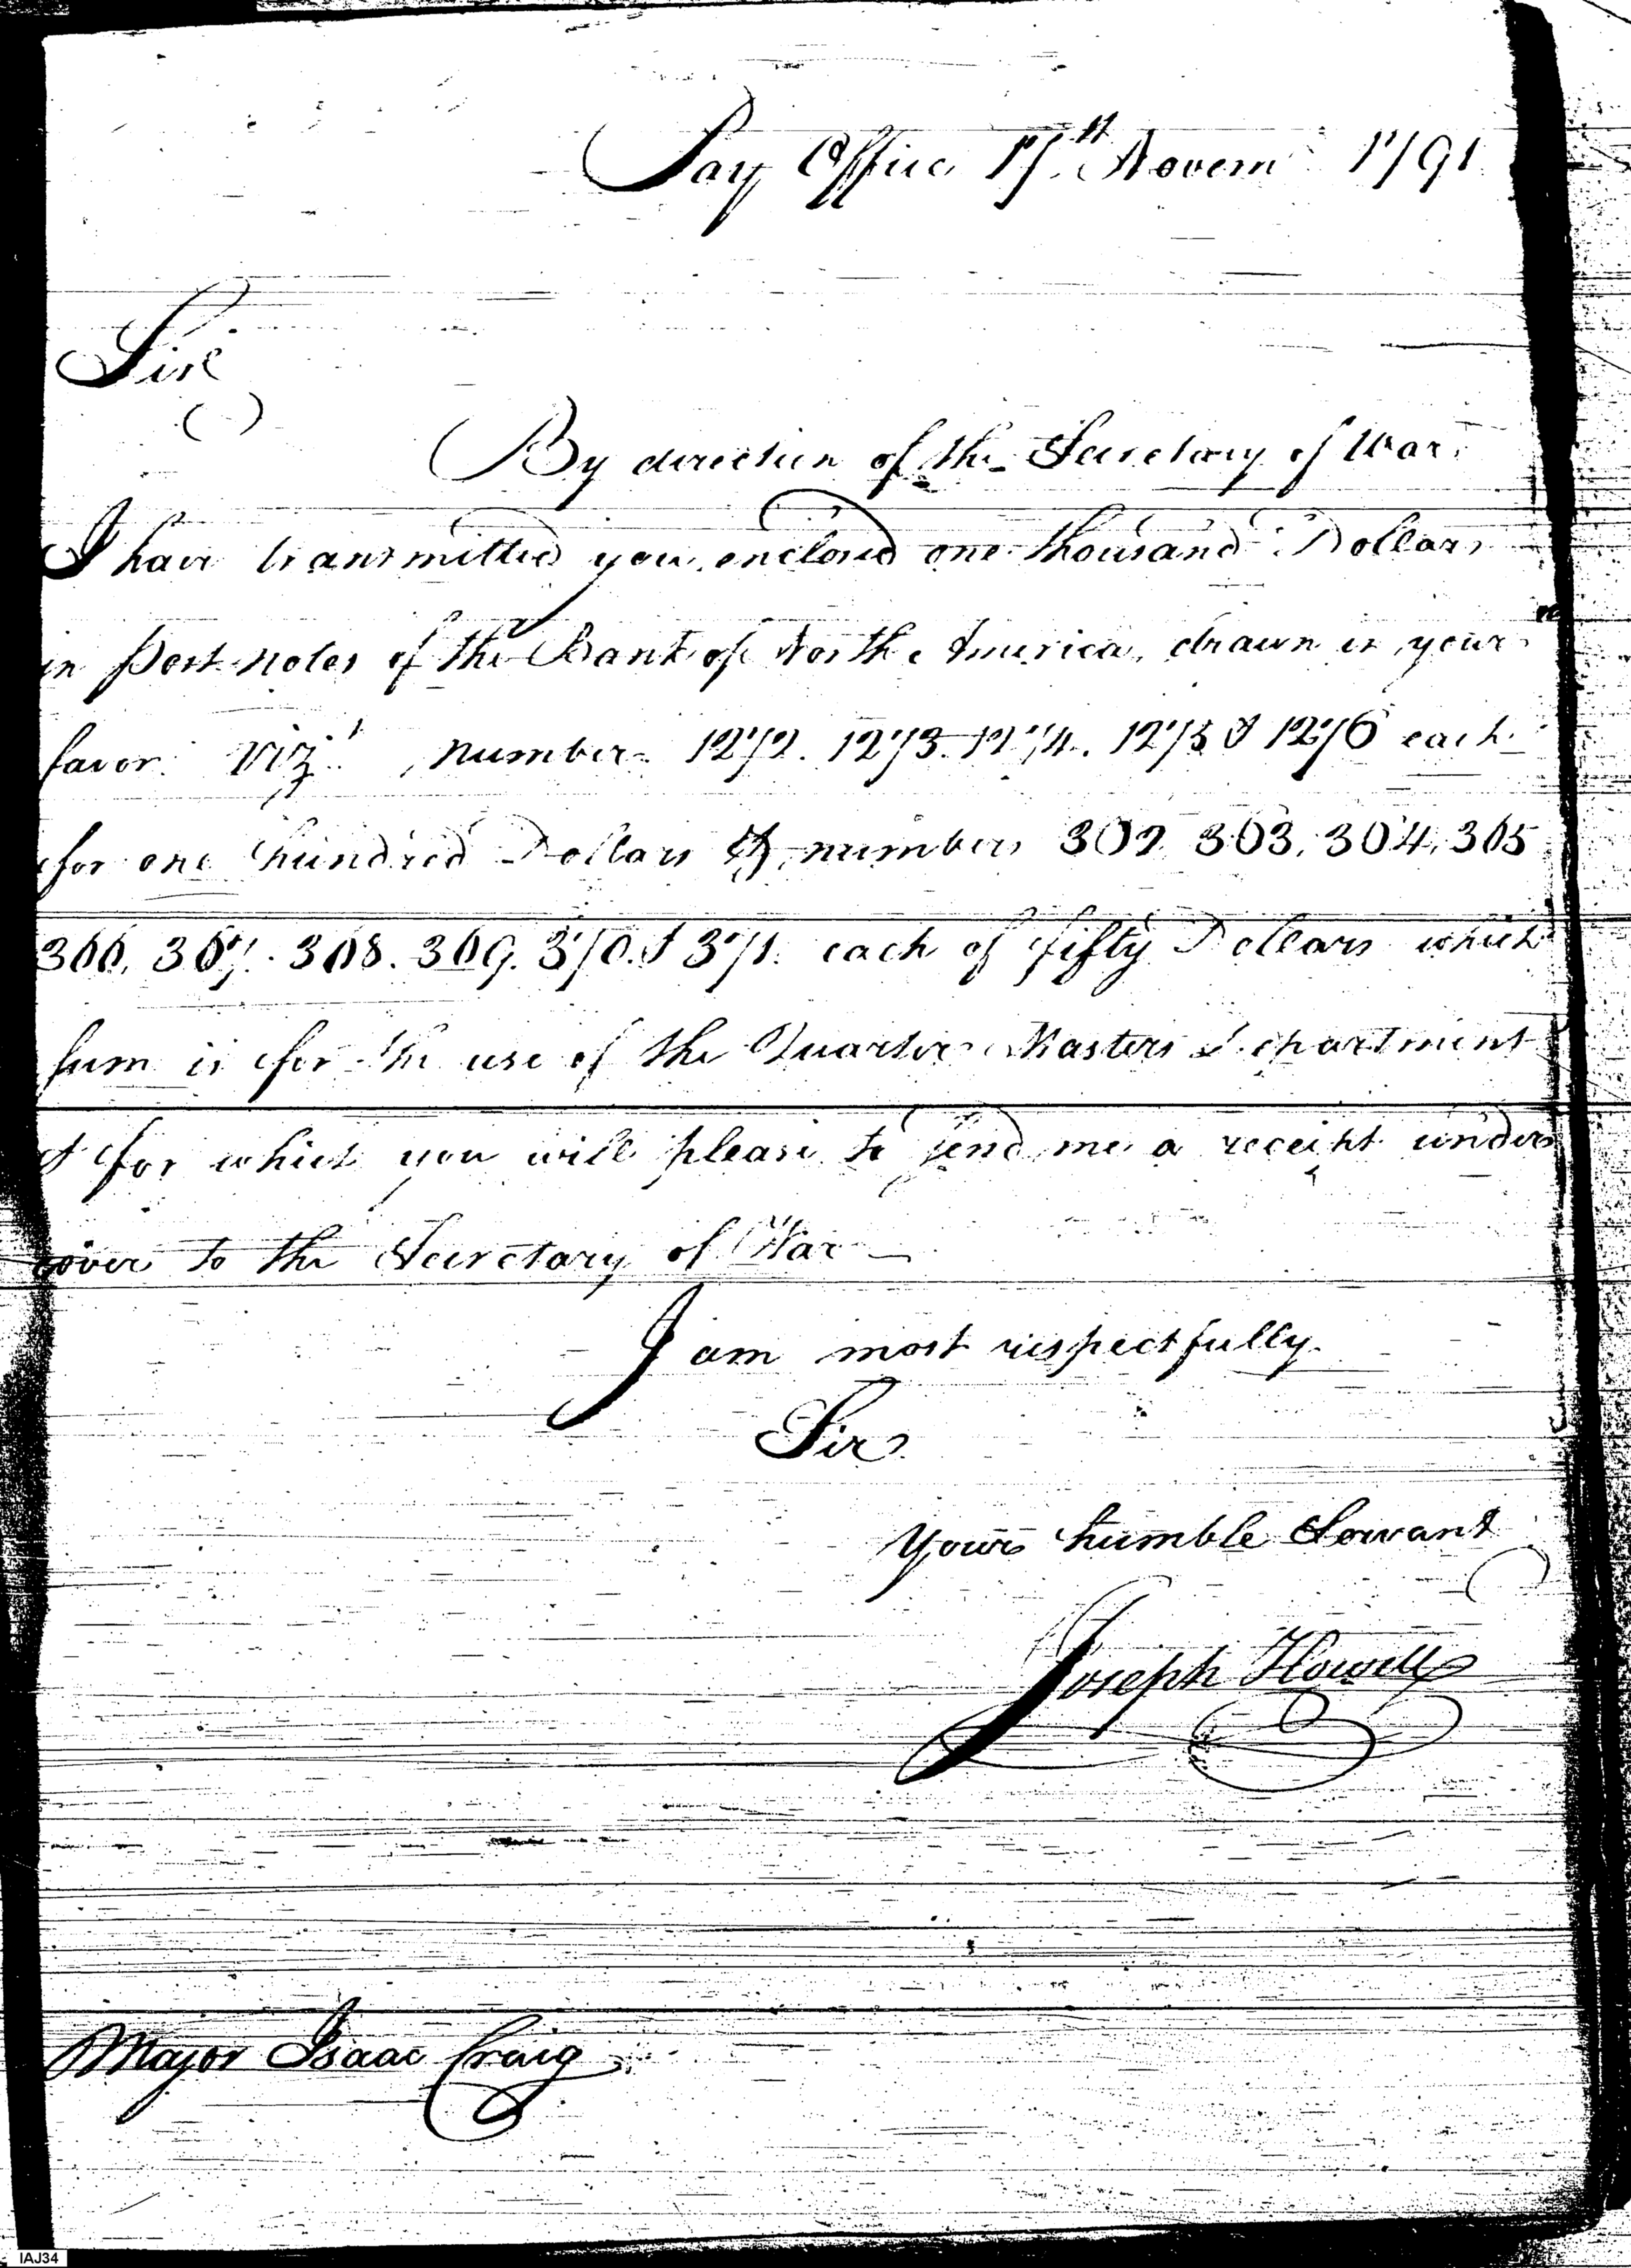 Pay Office 17th Novem 1791
Sir
By direction of the Secretary of War
I have transmitted you enclosed one thousand Dollars
in Post notes of the Bank of North America, drawn in your
favor Viz. number 1272. 1273. 1274. 1275 & 1276 each
for one hundred Dollars & number 362 363. 364. 365
366. 367. 368. 369. 370. & 371. each of fifty Dollars which
sum is for the use of the Quarter Masters Department
& for which you will please to send me a receipt under
cover to the Secretary of War
I am most respectfully
Sir
Your humble Servant
Joseph Howell
Major Isaac Craig
IAJ34